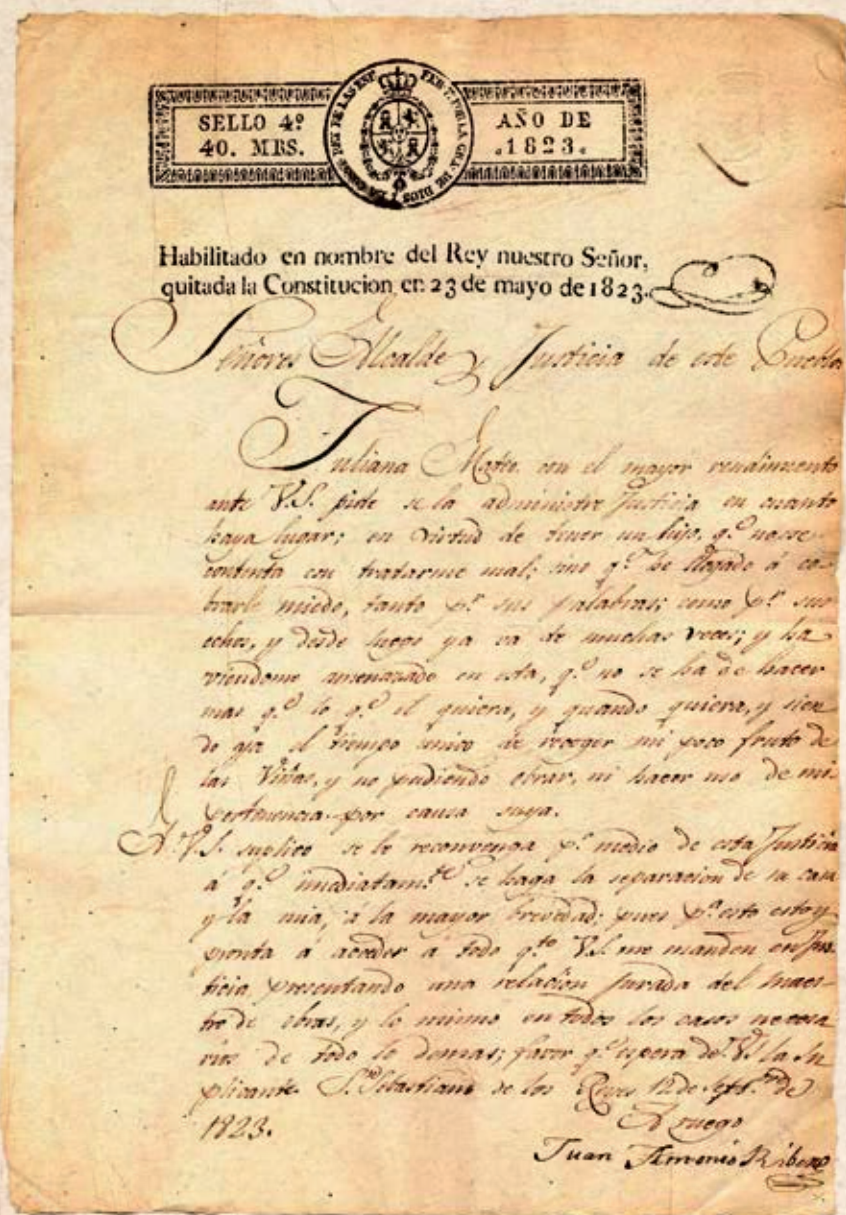 SELLO 4º
40. MRS.
AÑO DE
1823.
Habilitado en nombre del Rey nuestro Señor,
quitada la Constitucion en 23 de mayo de 1823.
Señores Alcalde y Justicia de este Pueblo
Juliana Mateo con el mayor rendimiento
ante V.S. pide se la administre Justicia en cuanto
haya lugar; en virtud de tener un hijo, q.e no se
contenta con tratarme mal; sino q.e he llegado á co-
brarle miedo, tanto p.r sus palabras; como p.r sus
echos, y desde luego ya va de muchas veces; y ha
viendome amenazado en esta, q.e no se ha de hacer
mas q.e lo q.e el quiera, y quando quiera, y sien
do ya el tiempo unico de recoger mi poco fruto de
las Viñas, y no pudiendo obrar, ni hacer uso de mi
pertenencia por causa suya.
A V.S. suplico se le reconvenga p.r medio de esta Justicia
á q.e imediatam.te se haga la separacion de su casa
y la mia, á la mayor brevedad; pues p.a esto estoy
pronta á acceder á todo q.to V.S. me manden en Jus
ticia presentando una relacion jurada del maes-
tro de obras, y lo mismo en todos los casos necesa
rios de todo lo demas; favor q.e espera de V.S. la Su
plicante. S.n Sebastian de los Reyes 12 de Set.bre de
1823.
A ruego
Juan Antonio Ribero